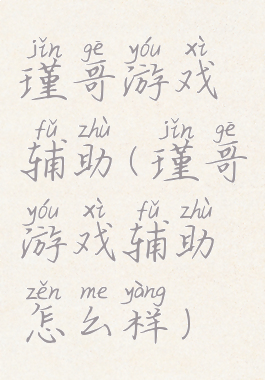 jǐn gē yóu xì
瑾哥游戏
fǔ zhù jǐn gē
辅助(瑾哥
yóu xì fǔ zhù
游戏辅助
zěn me yàng
怎么样)